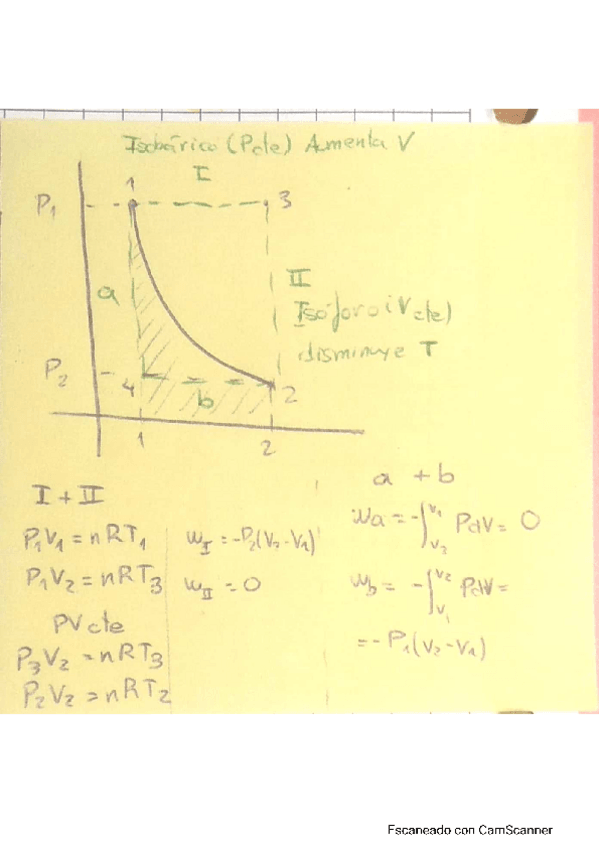 Isobárico (Pcte) Aumenta V
I
1
P₁
3
a
II
Isóforo (Vcte)
disminuye T
P₂
4
b
2
1
2
I + II
P₁V₁ = nRT₁
P₁V₂ = nRT₃
PVcte
P₃V₂ = nRT₃
P₂V₂ = nRT₂
w_I = -P₂(V₂-V₁)
w_II = 0
a + b
Wa = -∫_{V₂}^{V₁} PdV = 0
W_b = -∫_{V₁}^{V₂} PdV =
= -P₁(V₂-V₁)
Escaneado con CamScanner